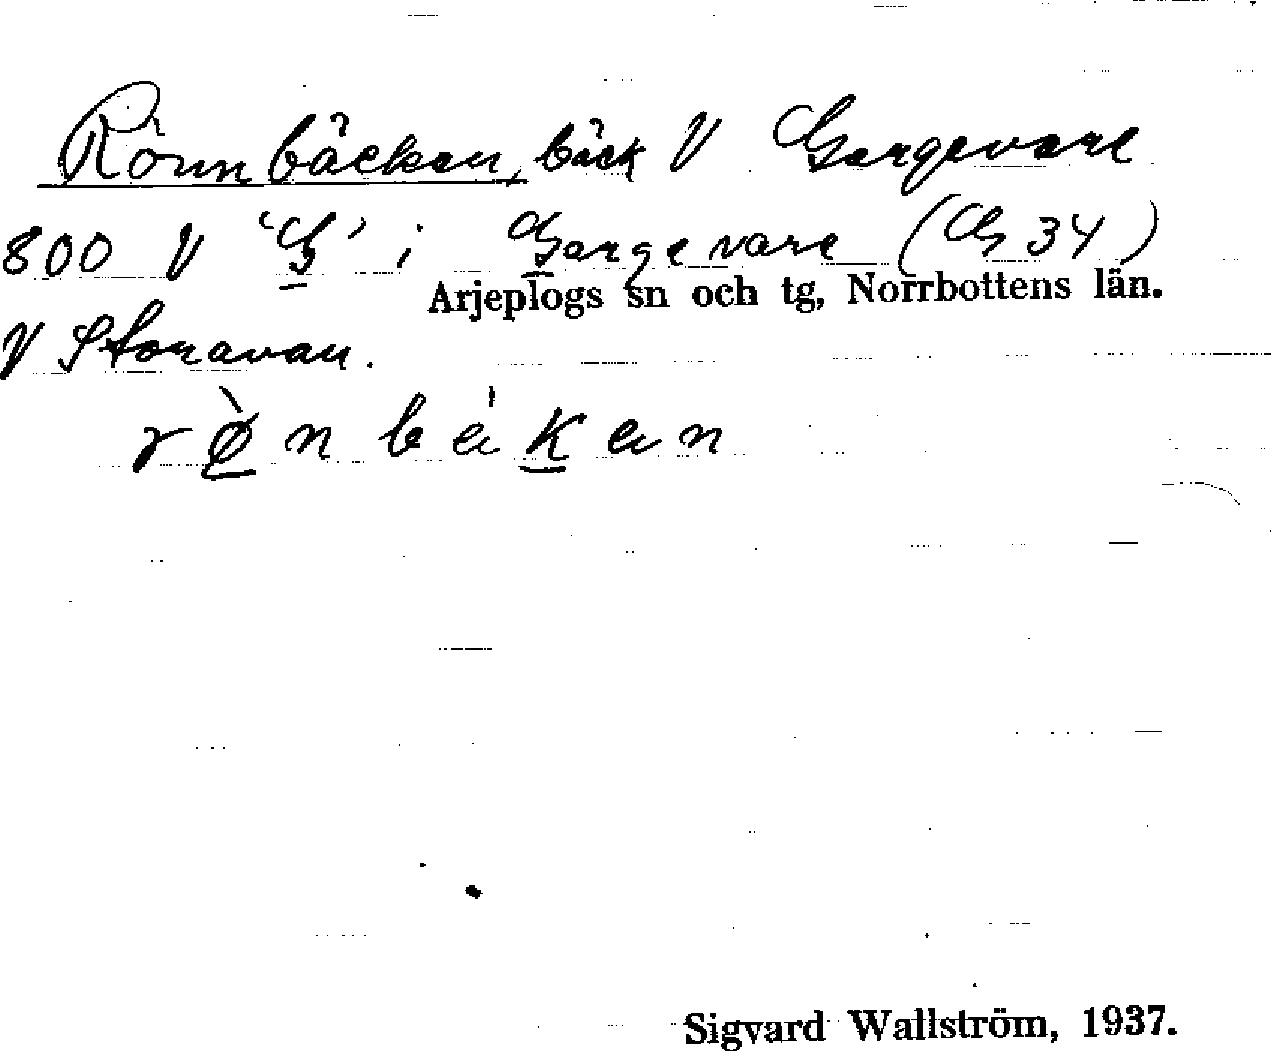 Rönnbäcken, bäck V Gargevare
800 V 'G' i Gargevare (G 34)
Arjeplogs sn och tg, Norrbottens län.
V Storavan.
rø̀nbäkän
Sigvard Wallström, 1937.